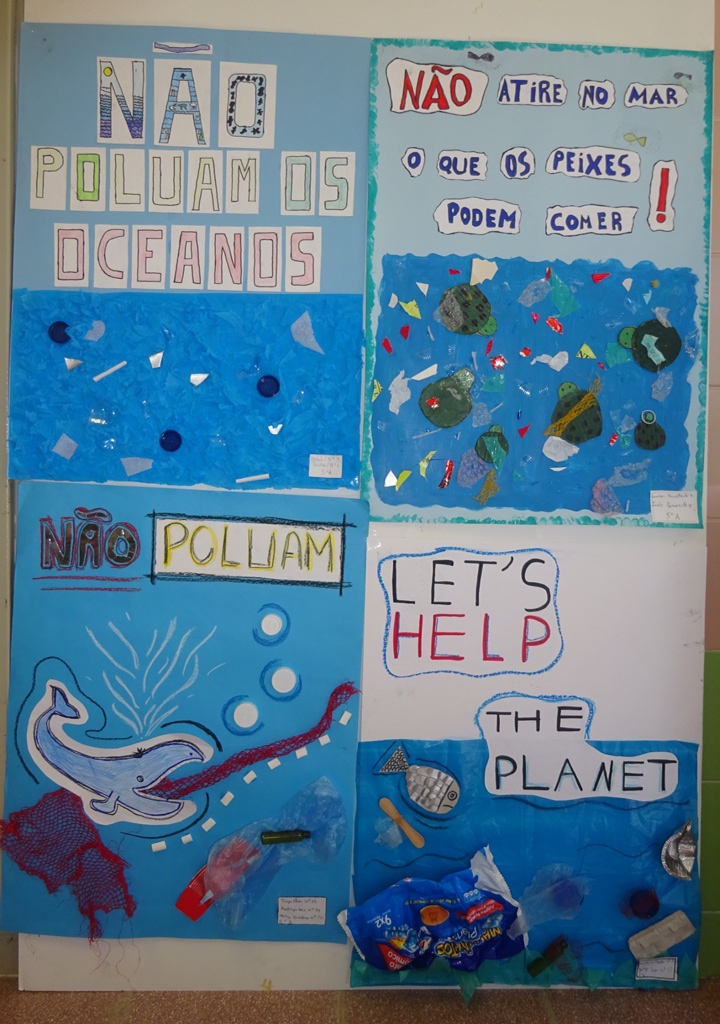 NÃO
POLUAM OS
OCEANOS
NÃO ATIRE NO MAR
O QUE OS PEIXES
PODEM COMER !
5º A
NÃO POLUAM
LET'S
HELP
THE
PLANET
9x2